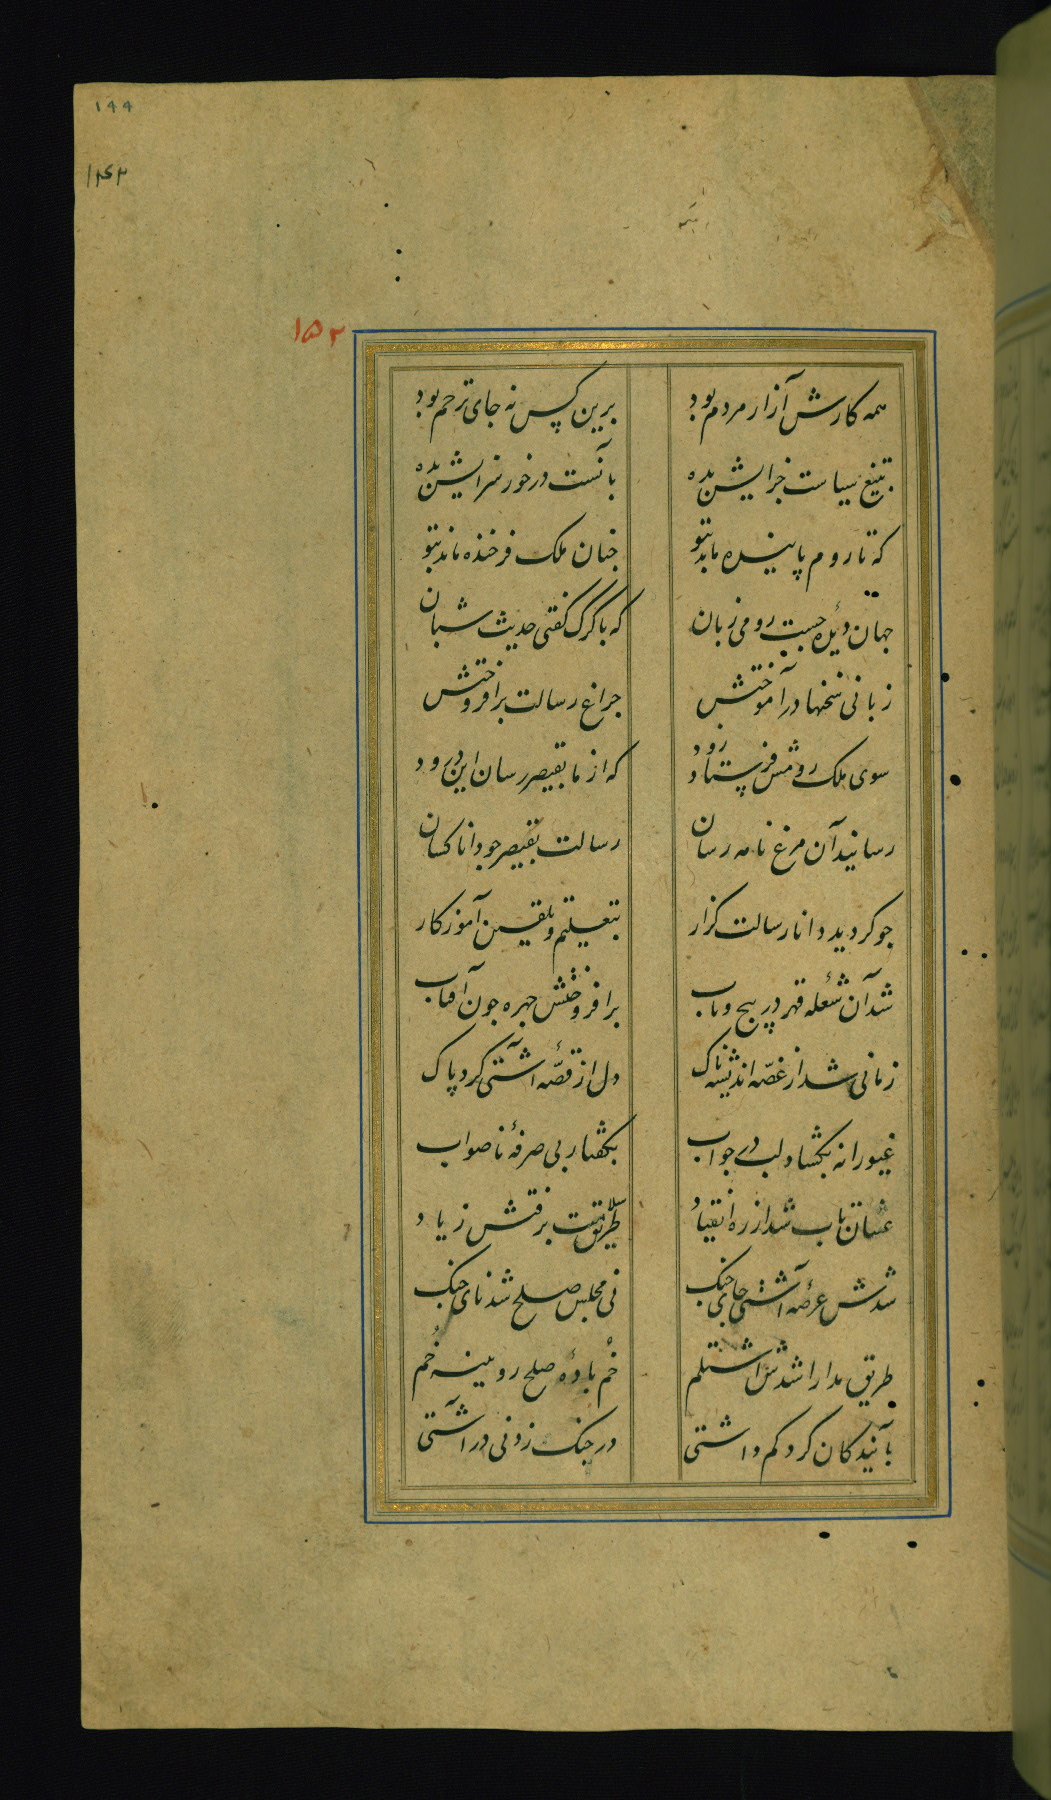 ۱۴۴
۱۵۲
همه کارش آزار مردم بود
برین کس نه جای ترحم بود
بتیغ سیاست جزایش بده
بآنست درخور سزایش بده
که تا روم پاینده ماند بتو
جنان ملک فرخنده ماند بتو
جهان دیده جست رومی زبان
که با کرک کفتی حدیث شبان
زبانی سخنها در آموختش
جراغ رسالت برافروختش
سوی ملک رومش فرستاد زود
که از ما بقیصر رسان این درود
رسانید آن مرغ نامه رسان
رسالت بقیصر جو دانا کسان
جو کردید دانا رسالت کزار
بتعلیم و تلقین آموزکار
شد آن شعله قهر در پیج و تاب
برافروختش جهره جون آفتاب
زمانی شد از غصّه اندیشه ناک
دل از قصّهٔ آشتی کرد پاک
غیورانه بکشاد لب در جواب
بکفتار بی صرفهٔ ناصواب
عنان تاب شد از ره انقیاد
طریق برفتش ز یاد
شدش عرصهٔ آشتی جای جنک
نی مجلس صلح شد نای جنک
طریق مدارا شدش اشتلم
خم بادهٔ صلح رویینه خم
بآیندکان کرد کم داشتی
در جنک زد نی در آشتی